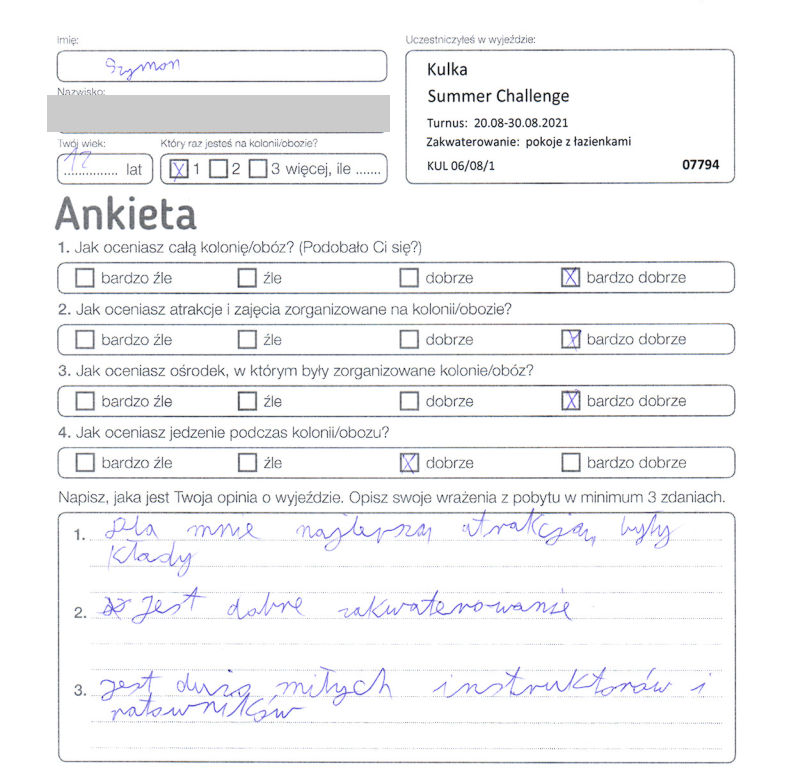 Imię:
Szymon
Uczestniczyłeś w wyjeździe:
Kulka
Summer Challenge
Turnus: 20.08-30.08.2021
Zakwaterowanie: pokoje z łazienkami
KUL 06/08/1 07794
Nazwisko:
Twój wiek:
12 lat
Który raz jesteś na kolonii/obozie?
X 1 2 3 więcej, ile .......
Ankieta
1. Jak oceniasz całą kolonię/obóz? (Podobało Ci się?)
bardzo źle źle dobrze X bardzo dobrze
2. Jak oceniasz atrakcje i zajęcia zorganizowane na kolonii/obozie?
bardzo źle źle dobrze X bardzo dobrze
3. Jak oceniasz ośrodek, w którym były zorganizowane kolonie/obóz?
bardzo źle źle dobrze X bardzo dobrze
4. Jak oceniasz jedzenie podczas kolonii/obozu?
bardzo źle źle X dobrze bardzo dobrze
Napisz, jaka jest Twoja opinia o wyjeździe. Opisz swoje wrażenia z pobytu w minimum 3 zdaniach.
1. Dla mnie najlepszą atrakcją były
kłady
2. Jest dobre zakwaterowanie
3. jest dużo miłych instruktorów i
ratowników